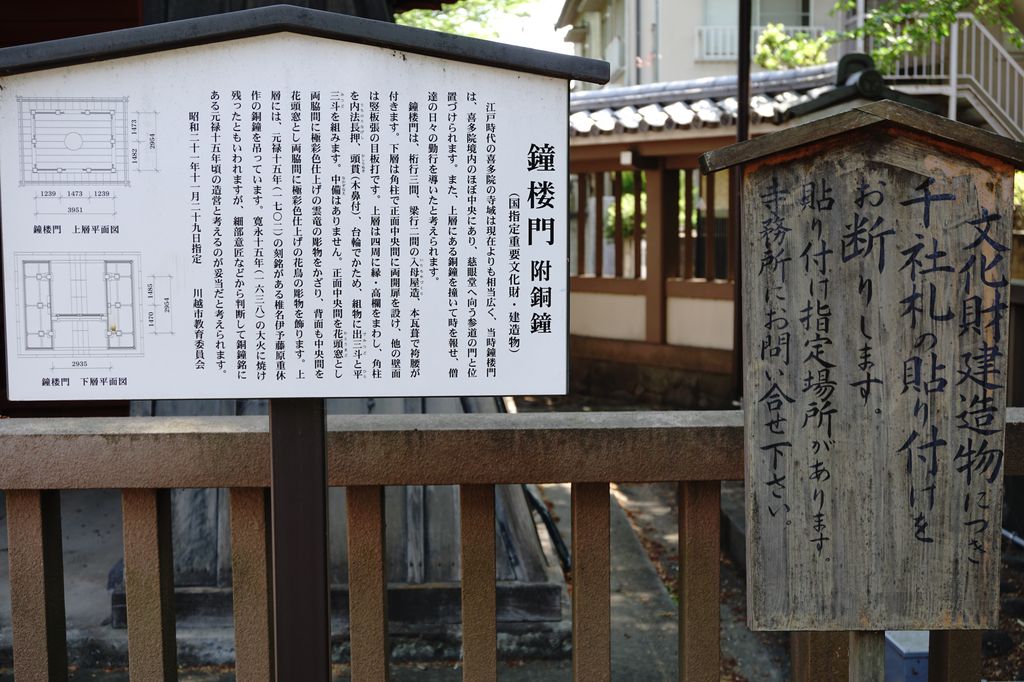 鐘楼門 附銅鐘
(国指定重要文化財・建造物)
江戸時代の喜多院の寺域は現在よりも相当広く、当時鐘楼門
は、喜多院境内のほぼ中央にあり、慈眼堂へ向う参道の門と位
置づけられます。また、上層にある銅鐘を撞いて時を報せ、僧
達の日々の勤行を導いたと考えられます。
鐘楼門は、桁行三間、梁行二間の入母屋造、本瓦葺で袴腰が
付きます。下層は角柱で正面中央間に両開扉を設け、他の壁面
は竪板張の目板打です。上層は四周に縁・高欄をまわし、角柱
を内法長押、頭貫(木鼻付)、台輪でかため、組物に出三斗と平
三斗を組みます。中備はありません。正面中央間を花頭窓とし
両脇間に極彩色仕上げの雲竜の彫物をかざり、背面も中央間を
花頭窓とし両脇間に極彩色仕上げの花鳥の彫物を飾ります。上
層には、元禄十五年(一七〇二)の刻銘がある椎名伊予藤原重休
作の銅鐘を吊っています。寛永十五年(一六三八)の大火に焼け
残ったともいわれますが、細部意匠などから判断して銅鐘銘に
ある元禄十五年頃の造営と考えるのが妥当だと考えられます。
昭和二十一年十一月二十九日指定 川越市教育委員会
1473
2954
1482
1239 1473 1239
3951
鐘楼門 上層平面図
1485
2954
1470
2935
鐘楼門 下層平面図
文化財建造物につき
千社札の貼り付けを
お断りします。
貼り付け指定場所があります。
寺務所にお問い合せ下さい。